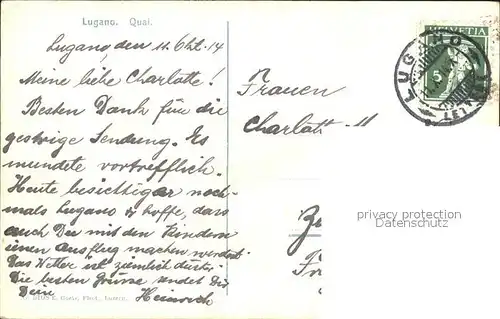 Lugano. Quai.
Lugano, den 11. Okt. 14
Meine liebe Charlotte!
Besten Dank für die
gestrige Sendung. Es
mundete vortrefflich.
Heute besichtige noch-
mals Lugano & hoffe, dass
auch Du mit den Kindern
einen Ausflug machen werdet.
Das Wetter ist ziemlich
Die besten Grüsse sendet Dir
Dein Heinrich
Phot., Luzern.
HELVETIA
5
LUGANO
LETT
Frauen
Charlott
privacy protection
Datenschutz